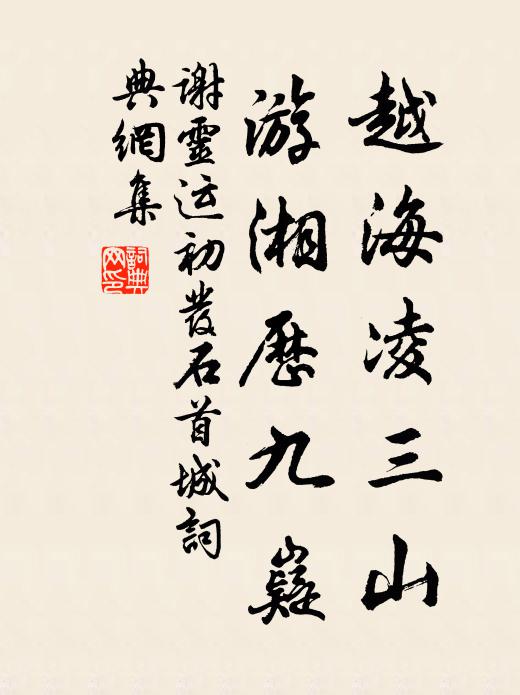 越海凌三山
游湘歷九嶷
謝靈运初發石首城詞
典網集
詞典
网印